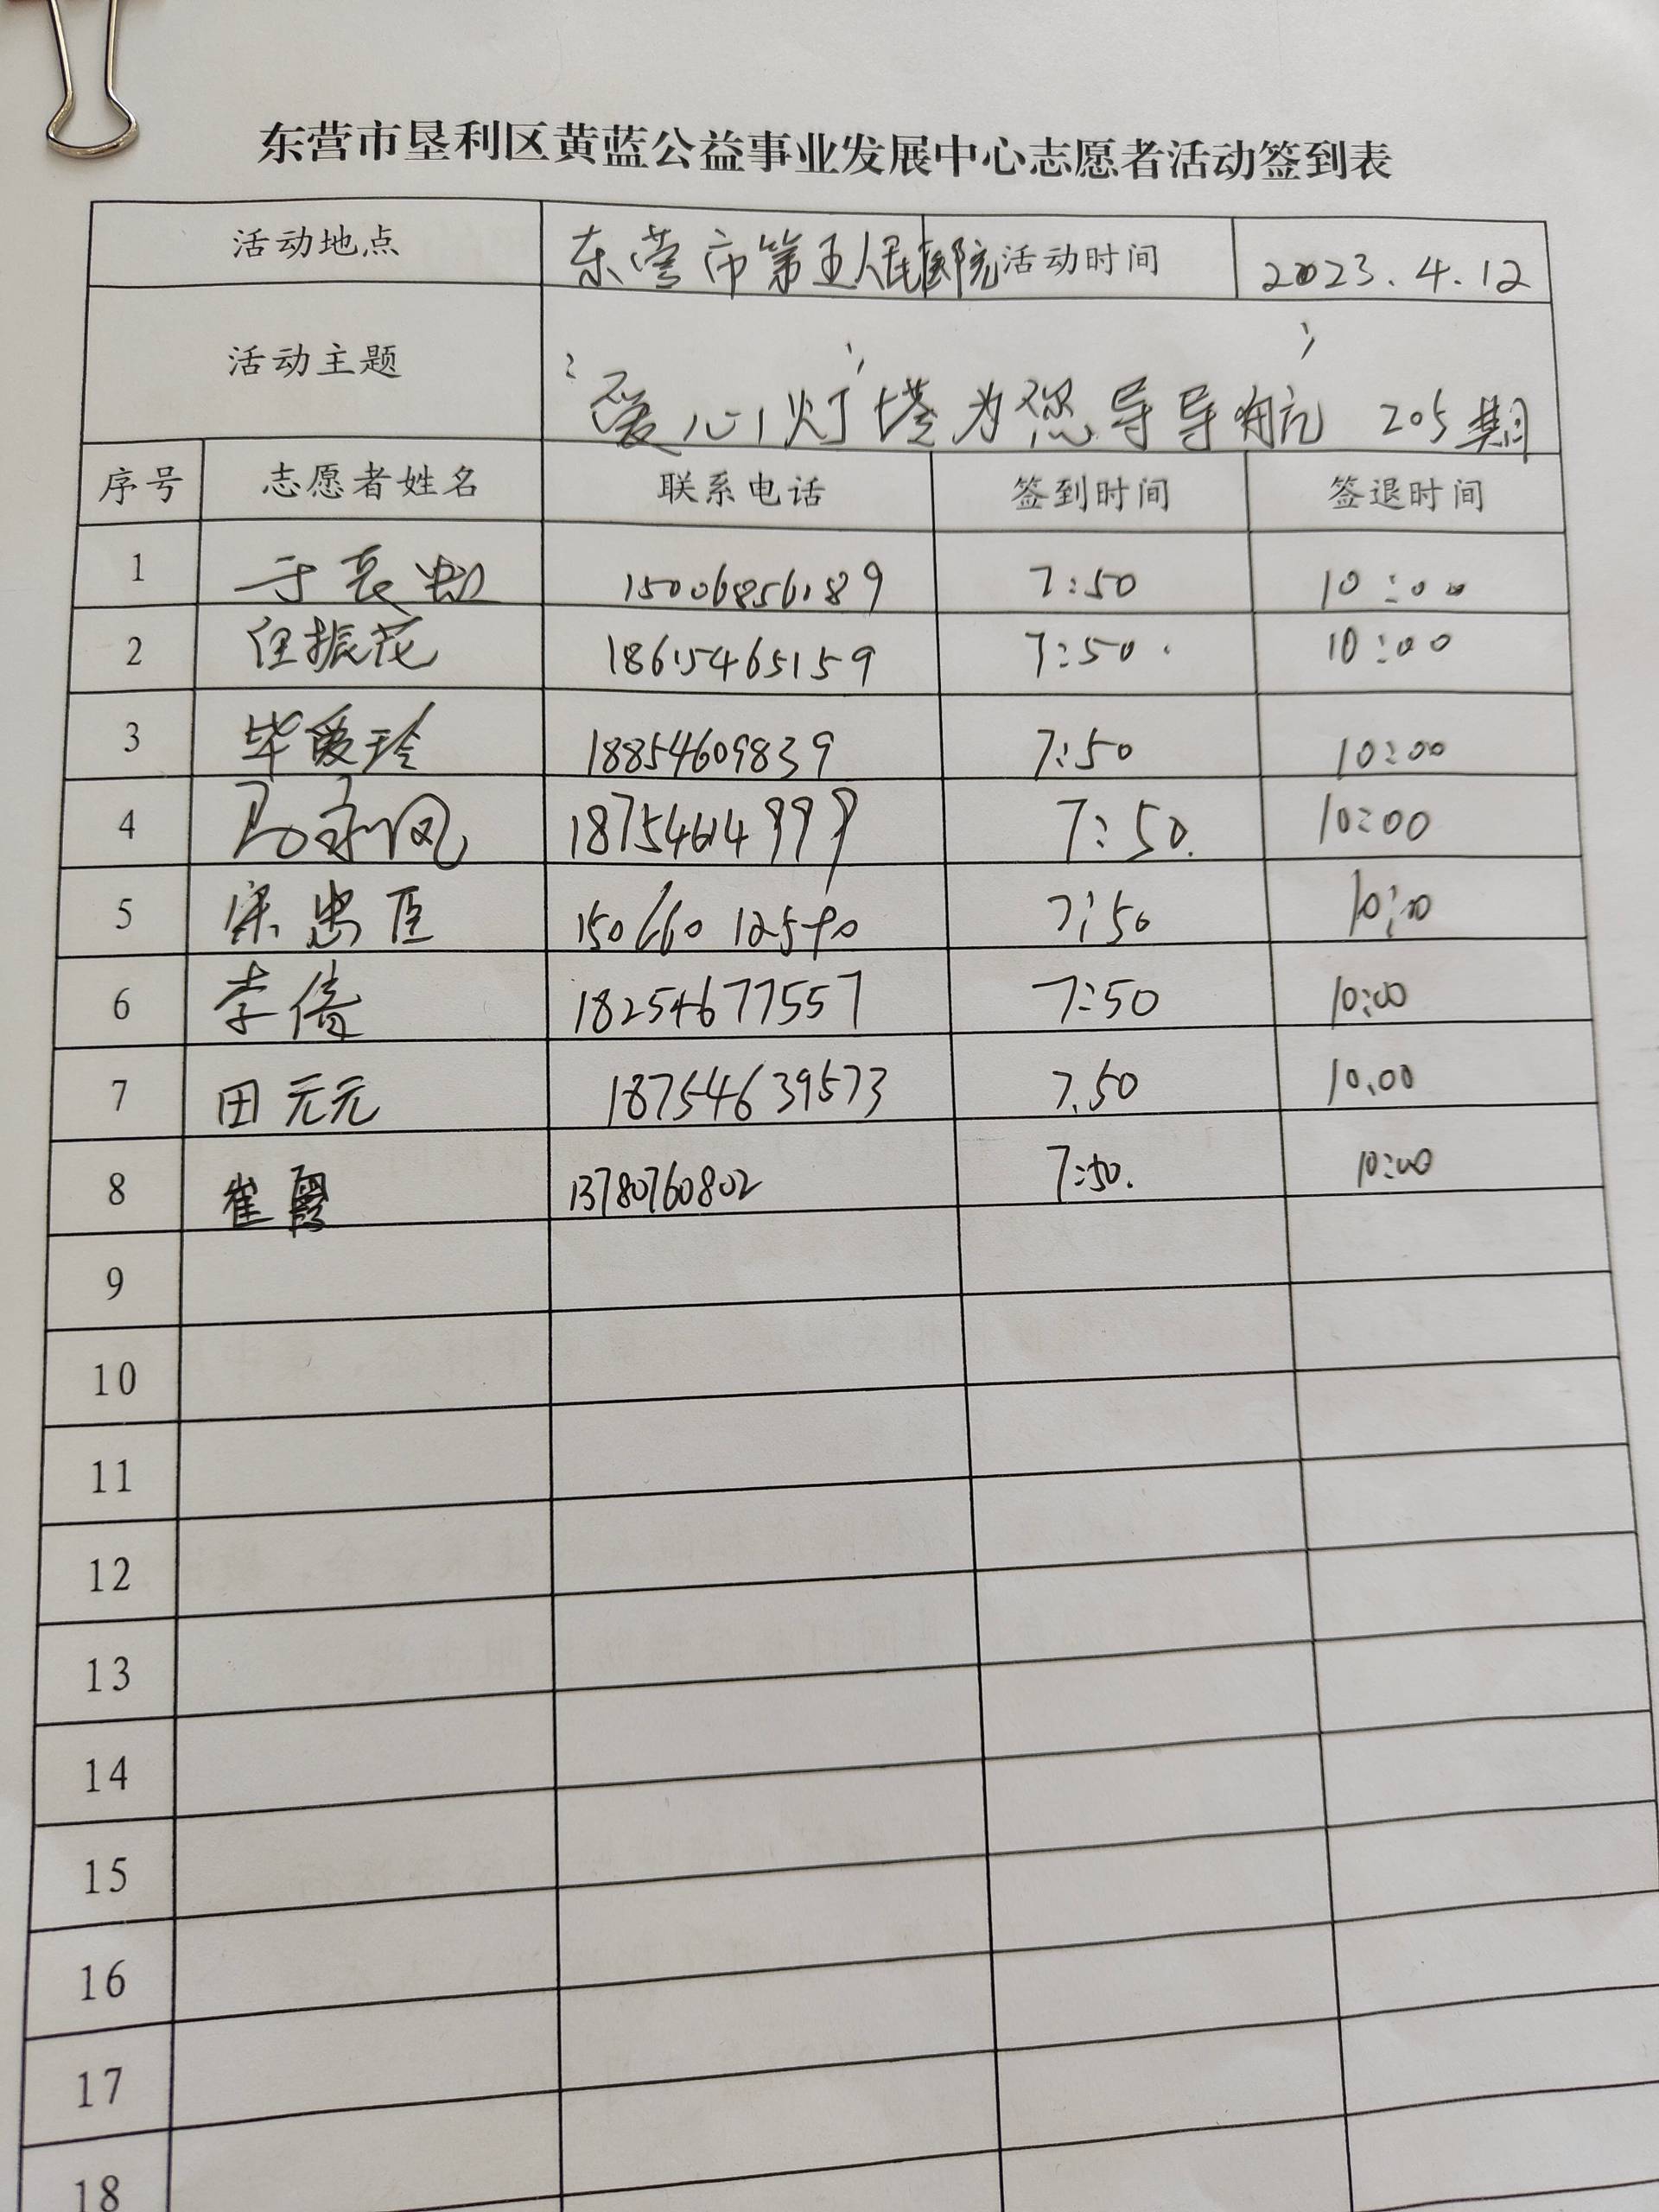 东营市垦利区黄蓝公益事业发展中心志愿者活动签到表
活动地点 东营市第五人民医院 活动时间 2023.4.12
活动主题 “爱心灯塔”为您导导航” 205期
序号 志愿者姓名 联系电话 签到时间 签退时间
1 于长 15006856189 7:50 10:00
2 任振花 18615465159 7:50. 10:00
3 毕爱玲 18854609839 7:50 10:00
4 马永凤 18754614999 7:50. 10:00
5 宋忠臣 7:50 10:00
6 李倩 18254677557 7:50 10:00
7 田元元 18754639573 7.50 10.00
8 崔霞 13780760802 7:50. 10:00
9
10
11
12
13
14
15
16
17
18